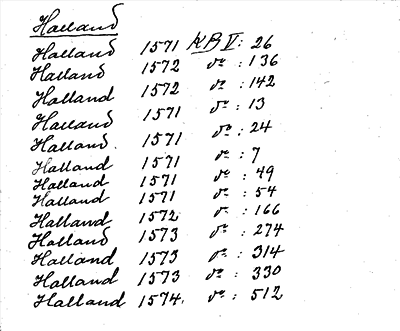 Halland
Halland 1571 KB V: 26
Halland 1572 do : 136
Halland 1572 do : 142
Halland 1571 do : 13
Halland. 1571 do : 24
Halland 1571 do : 7
Halland 1571 do : 49
Halland 1571 do : 54
Halland 1572 do : 166
Halland 1573 do : 274
Halland 1573 do : 314
Halland 1573 do : 330
Halland 1574. do : 512